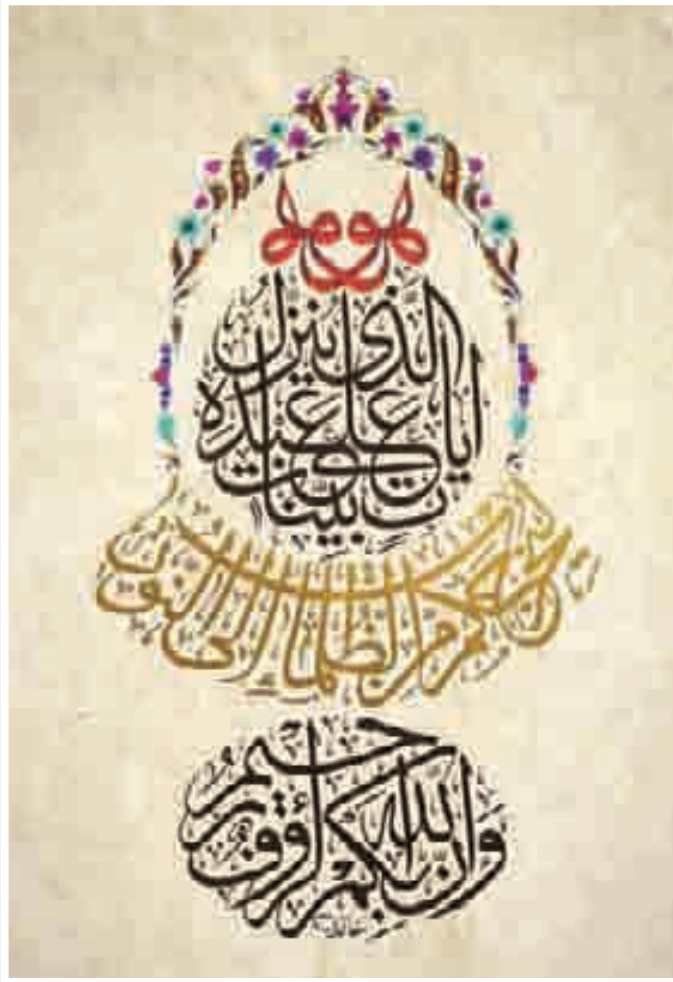 هو
الذي ينزل
على عبده
آيات بينات
ليخرجكم من الظلمات إلى النور
وإن الله بكم لرؤوف رحيم